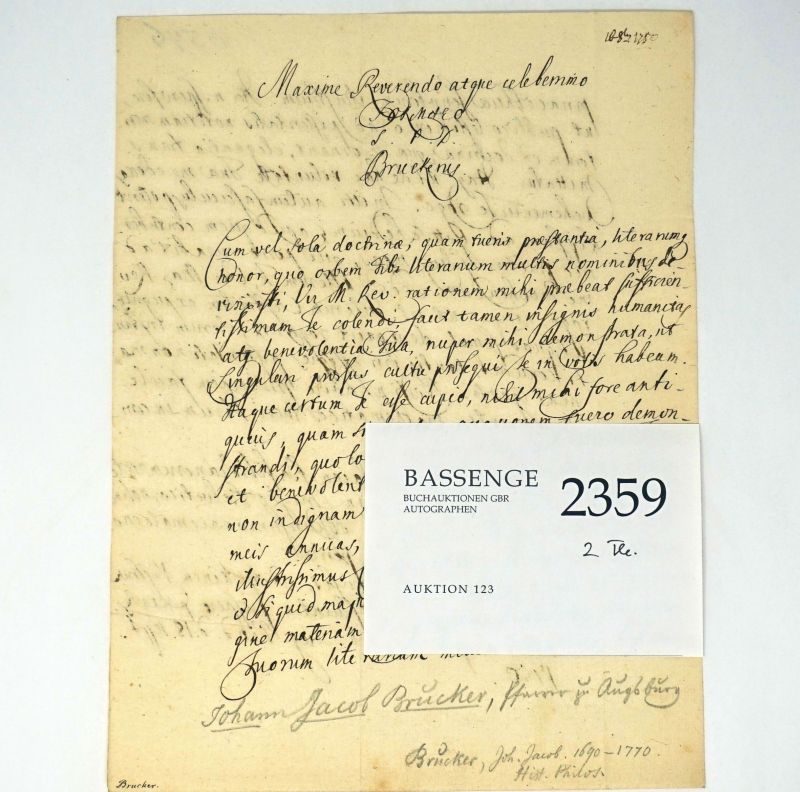 Maxime Reverendo atque celeberrimo
S. P. D.
Bruckerus.
Cum vel sola doctrinæ, quam tueris præstantia, literarumq
honor, quo orbem Tibi literarium multis nominibus de-
vinxisti, Vir M. Rev. rationem mihi præbeat sufficien-
tissimam Te colendi, facit tamen insignis humanitas
atq benevolentia Tua, nuper mihi demonstrata, ut
singulari prorsus cultu prosequi Te in votis habeam.
Itaque certum Te esse cupio, nihil mihi fore anti-
quius, quam
fuero demon-
strandi, quo
et benevolent
non indignam
meis annuas,
illustrissimus
aliquid
materiam
Tuorum
Johann Jacob Brucker, Pfarrer zu Augsburg
Brucker, Joh. Jacob. 1690-1770.
Hist. Philos.
Brucker.
BASSENGE
BUCHAUKTIONEN GBR
AUTOGRAPHEN
2359
2 Tle.
AUKTION 123